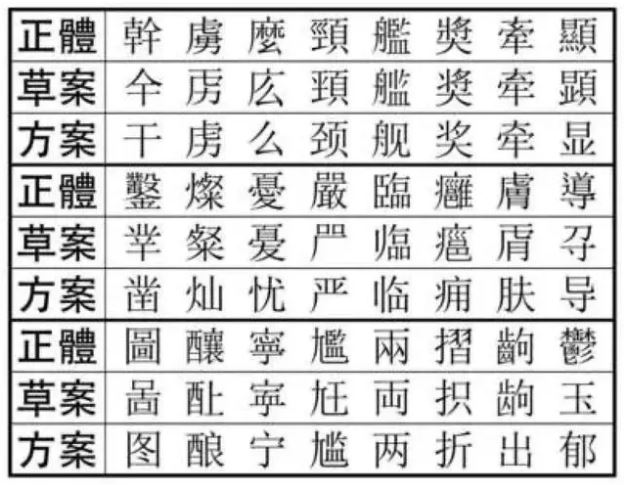 正體 幹 虜 麼 頸 艦 奬 牽 顯
草案 仐 虏 庅 頚 艦 奨 牵 顕
方案 干 虏 么 颈 舰 奖 牵 显
正體 鑿 燦 憂 嚴 臨 癰 膚 導
草案 粲 严 临 肓 寻
方案 凿 灿 忧 严 临 痈 肤 导
正體 圖 釀 寧 尷 兩 摺 齣 鬱
草案 啚 � 寜 尩 両 㧥 龄 玉
方案 图 酿 宁 尴 两 折 出 郁